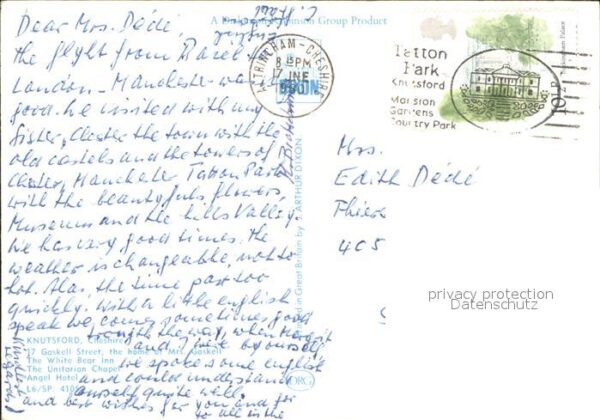 A Dickinson Robinson Group Product
Dear Mrs. Dédé,
the flyght from Basel
London - Manchester was
good. We visited with my
Sister, Chester the town with the
old castels and the towers of
Chester, Manchester Tatton Park
with the beautyfuls flowers,
Museums and the hills Valley
We has very good times. The
weather is changeable, not to
hot. Alas, the time past too
quickly. With a little english
speak we comes sometimes good
trough the way, when
and I were by ourself
we spoke some english
and could understand
ourself quite well.
and best wishes for you and
to all in the
KNUTSFORD, Cheshire
17 Gaskell Street, the home of Mrs. Gaskell
The White Bear Inn
The Unitarian Chapel
Angel Hotel
L6/SP.
in Great Britain by ARTHUR DIXON
ALTRINCHAM - CHESHIRE
8 - PM
17 JNE
Tatton
Park
Knutsford
Mansion
Gardens
Country Park
Mrs.
Edith Dédé
405
privacy protection
Datenschutz